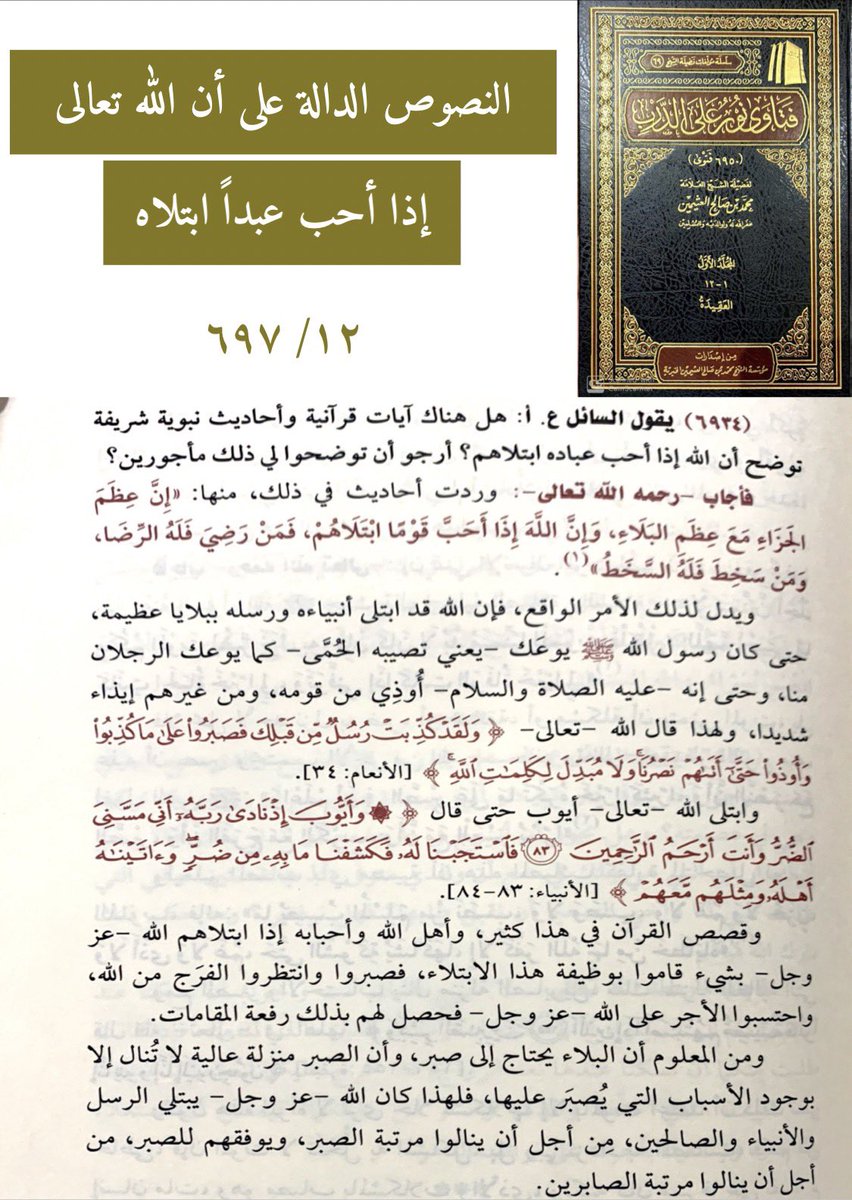 النصوص الدالة على أن الله تعالى
إذا أحب عبداً ابتلاه
١٢/ ٦٩٧
سلسلة مؤلفات فضيلة الشيخ (٦٩)
فتاوى نور على الدرب
(٦٩٥٠ فتوى)
لفضيلة الشيخ العلامة
محمد بن صالح العثيمين
غفر الله له ولوالديه وللمسلمين
المجلد الأول
١-١٢
العقيدة
من إصدارات
مؤسسة الشيخ محمد بن صالح العثيمين الخيرية
(٦٩٣٤) يقول السائل ع. أ: هل هناك آيات قرآنية وأحاديث نبوية شريفة
توضح أن الله إذا أحب عباده ابتلاهم؟ أرجو أن توضحوا لي ذلك مأجورين؟
فأجاب -رحمه الله تعالى-: وردت أحاديث في ذلك، منها: «إِنَّ عِظَمَ
الجَزَاءِ مَعَ عِظَمِ البَلَاءِ، وَإِنَّ اللَّهَ إِذَا أَحَبَّ قَوْمًا ابْتَلَاهُمْ، فَمَنْ رَضِيَ فَلَهُ الرِّضَا،
وَمَنْ سَخِطَ فَلَهُ السَّخَطُ»(١).
ويدل لذلك الأمر الواقع، فإن الله قد ابتلى أنبياءه ورسله ببلايا عظيمة،
حتى كان رسول الله ﷺ يوعَك -يعني تصيبه الحُمَّى- كما يوعك الرجلان
منا، وحتى إنه -عليه الصلاة والسلام- أُوذِي من قومه، ومن غيرهم إيذاء
شديدا، ولهذا قال الله -تعالى- ﴿ وَلَقَدْ كُذِّبَتْ رُسُلٌ مِّن قَبْلِكَ فَصَبَرُوا۟ عَلَىٰ مَا كُذِّبُوا۟
وَأُوذُوا۟ حَتَّىٰٓ أَتَىٰهُمْ نَصْرُنَا ۚ وَلَا مُبَدِّلَ لِكَلِمَٰتِ ٱللَّهِ ۚ ﴾ [الأنعام: ٣٤].
وابتلى الله -تعالى- أيوب حتى قال ﴿ ۞ وَأَيُّوبَ إِذْ نَادَىٰ رَبَّهُۥٓ أَنِّى مَسَّنِىَ
ٱلضُّرُّ وَأَنتَ أَرْحَمُ ٱلرَّٰحِمِينَ ٨٣ فَٱسْتَجَبْنَا لَهُۥ فَكَشَفْنَا مَا بِهِۦ مِن ضُرٍّ ۖ وَءَاتَيْنَٰهُ
أَهْلَهُۥ وَمِثْلَهُم مَّعَهُمْ ﴾ [الأنبياء: ٨٣-٨٤].
وقصص القرآن في هذا كثير، وأهل الله وأحبابه إذا ابتلاهم الله -عز
وجل- بشيء قاموا بوظيفة هذا الابتلاء، فصبروا وانتظروا الفرَج من الله،
واحتسبوا الأجر على الله -عز وجل- فحصل لهم بذلك رفعة المقامات.
ومن المعلوم أن البلاء يحتاج إلى صبر، وأن الصبر منزلة عالية لا تُنال إلا
بوجود الأسباب التي يُصبَر عليها، فلهذا كان الله -عز وجل- يبتلي الرسل
والأنبياء والصالحين، مِن أجل أن ينالوا مرتبة الصبر، ويوفقهم للصبر، من
أجل أن ينالوا مرتبة الصابرين.